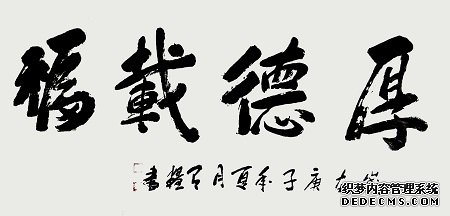 厚德載福
歲在庚子年夏月書
织梦内容管理系统
DEDECMS.COM